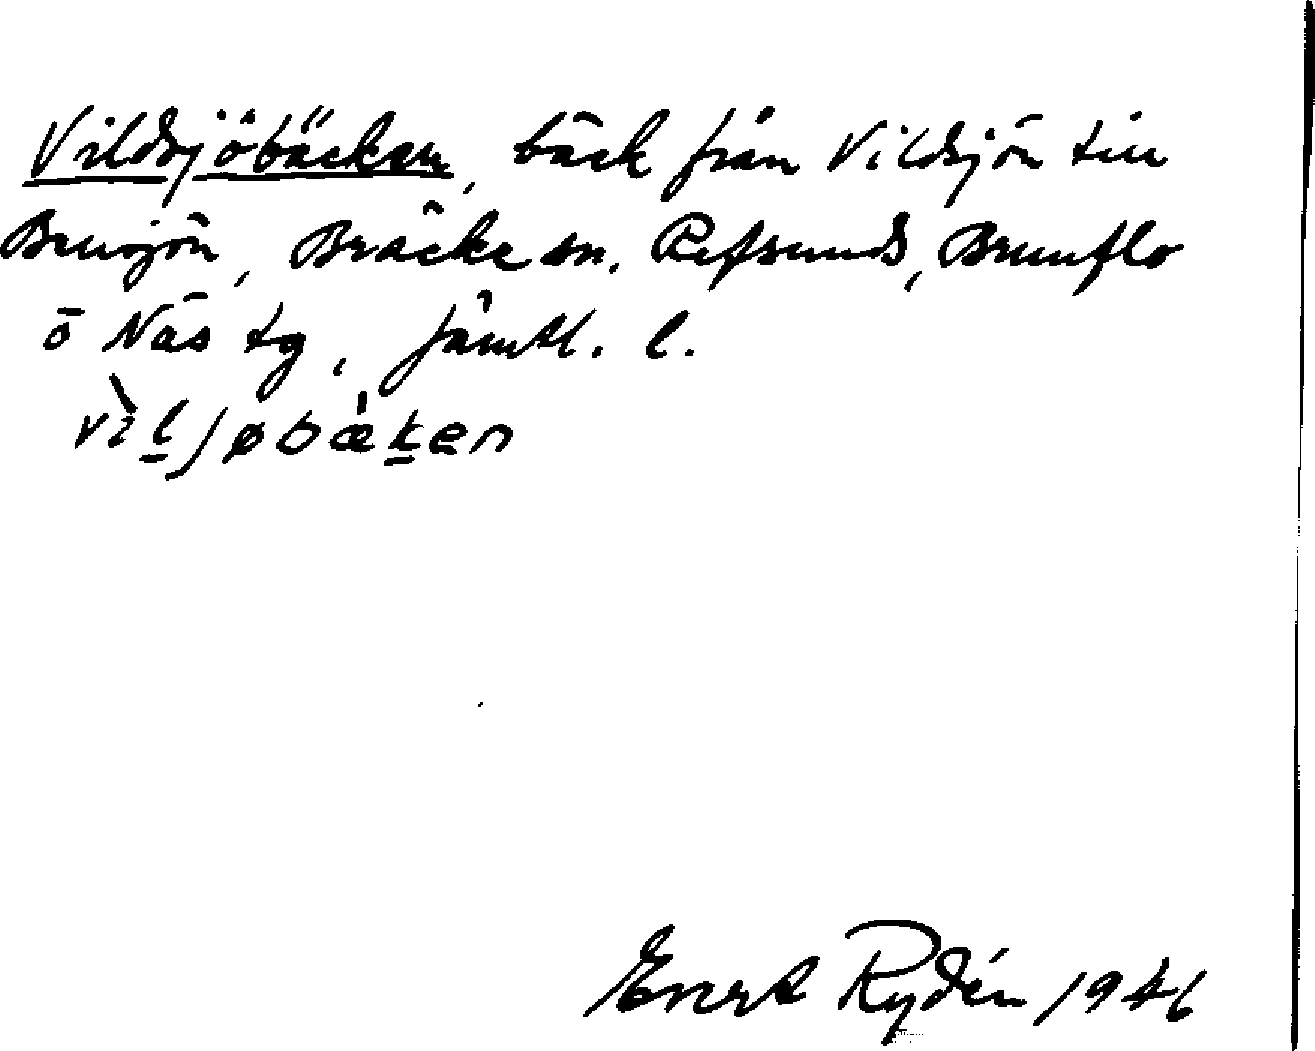 Vildsjöbäcken, bäck från Vildsjön till
Bensjön, Bräcke sn. Refsunds, Brunflo
o Näs tg, Jämtl. l.
vìlʃøbǽken
Evert Rydén 1946